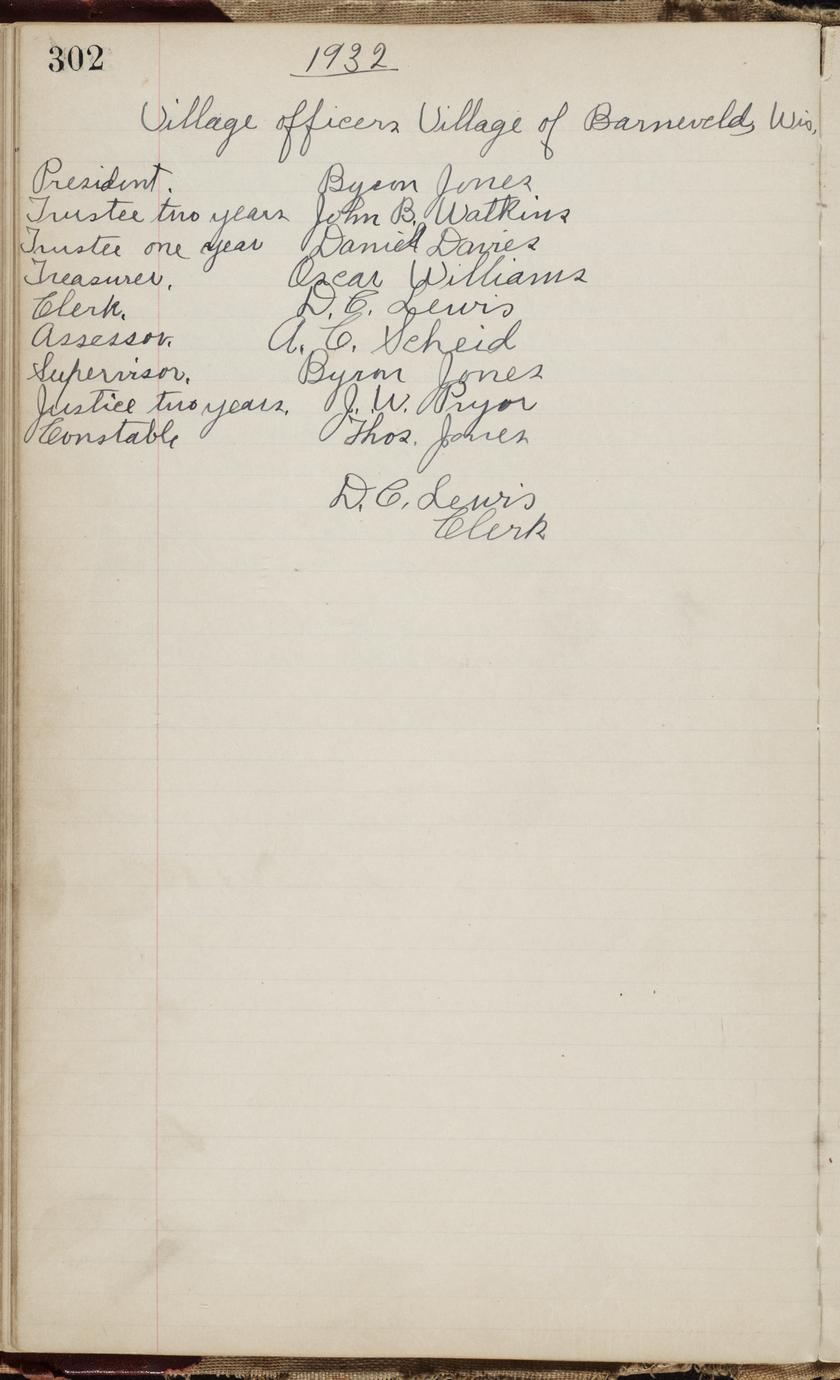 302 1932
Village officers Village of Barneveld, Wis.
President. Byron Jones
Trustee two years John B. Watkins
Trustee one year Daniel Davies
Treasurer. Oscar Williams
Clerk. D. C. Lewis
Assessor. A. C. Scheid
Supervisor. Byron Jones
Justice two years. J. W. Pryor
Constable Thos. Jones
D. C. Lewis
Clerk